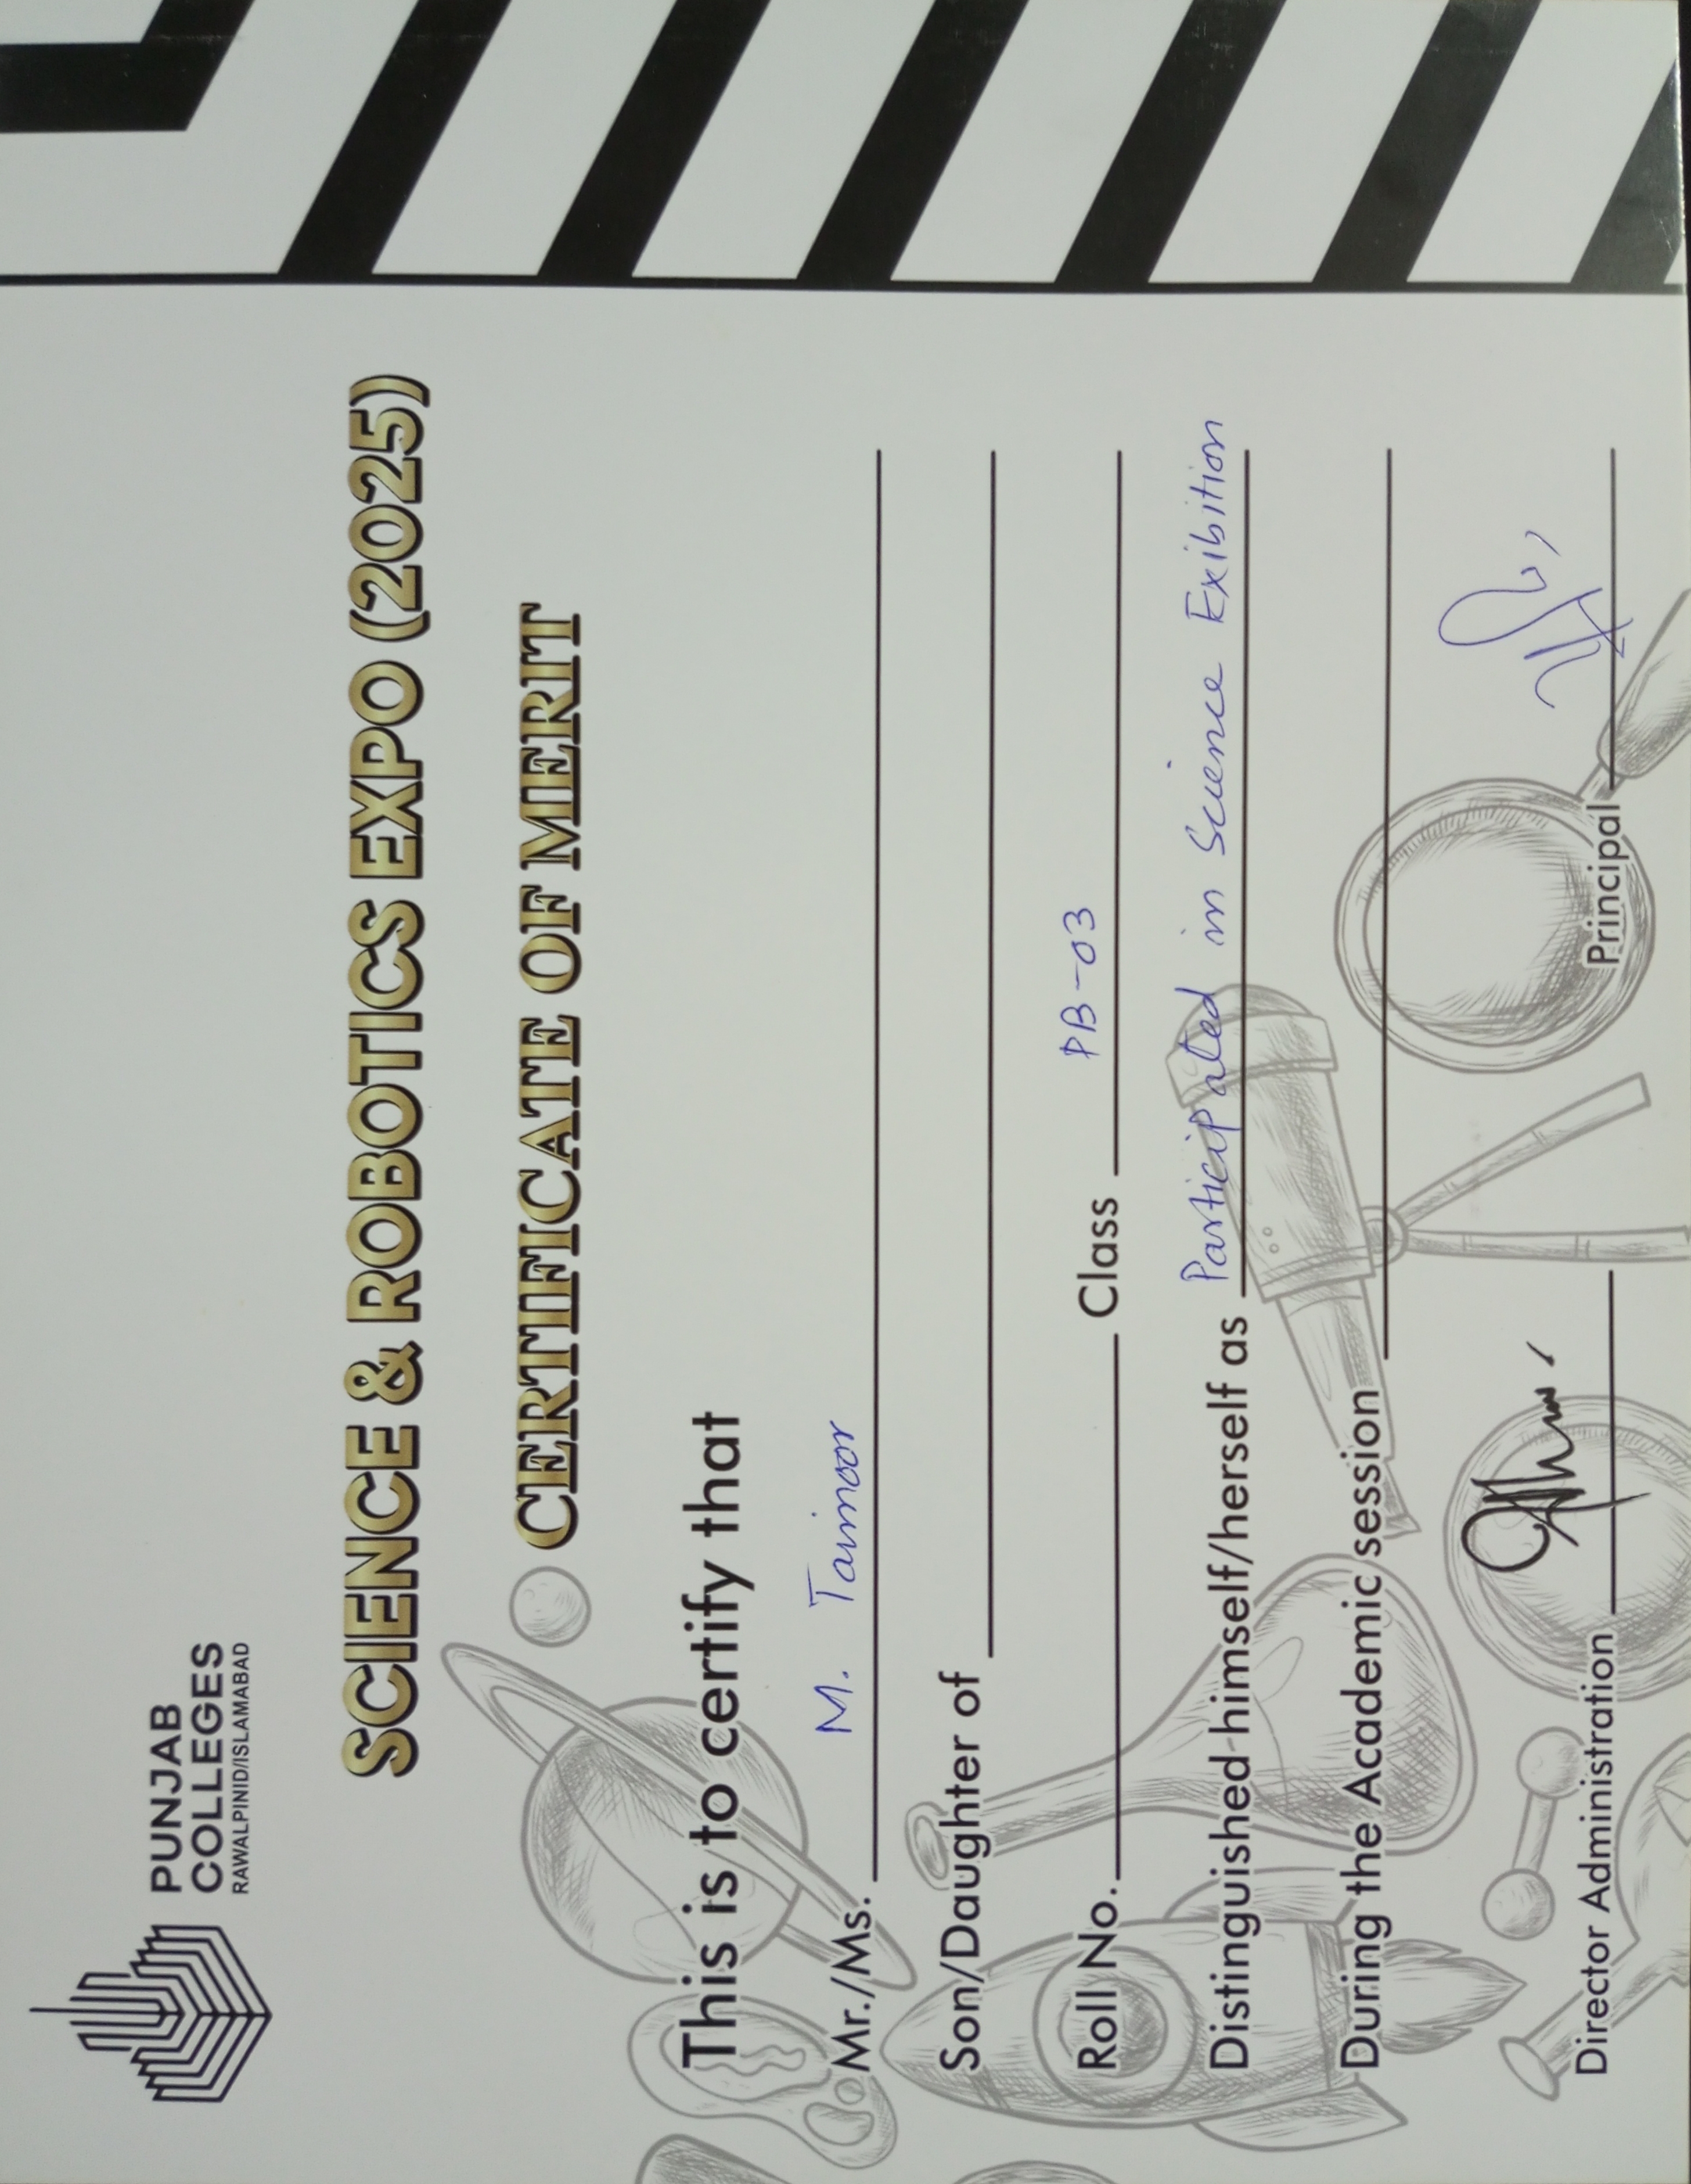 PUNJAB
COLLEGES
RAWALPINID/ISLAMABAD
SCIENCE & ROBOTICS EXPO (2025)
CERTIFICATE OF MERIT
This is to certify that
Mr./Ms. M. Taimoor
Son/Daughter of
Roll No. Class PB-03
Distinguished himself/herself as Participated in Science Exibition
During the Academic session
Director Administration Principal